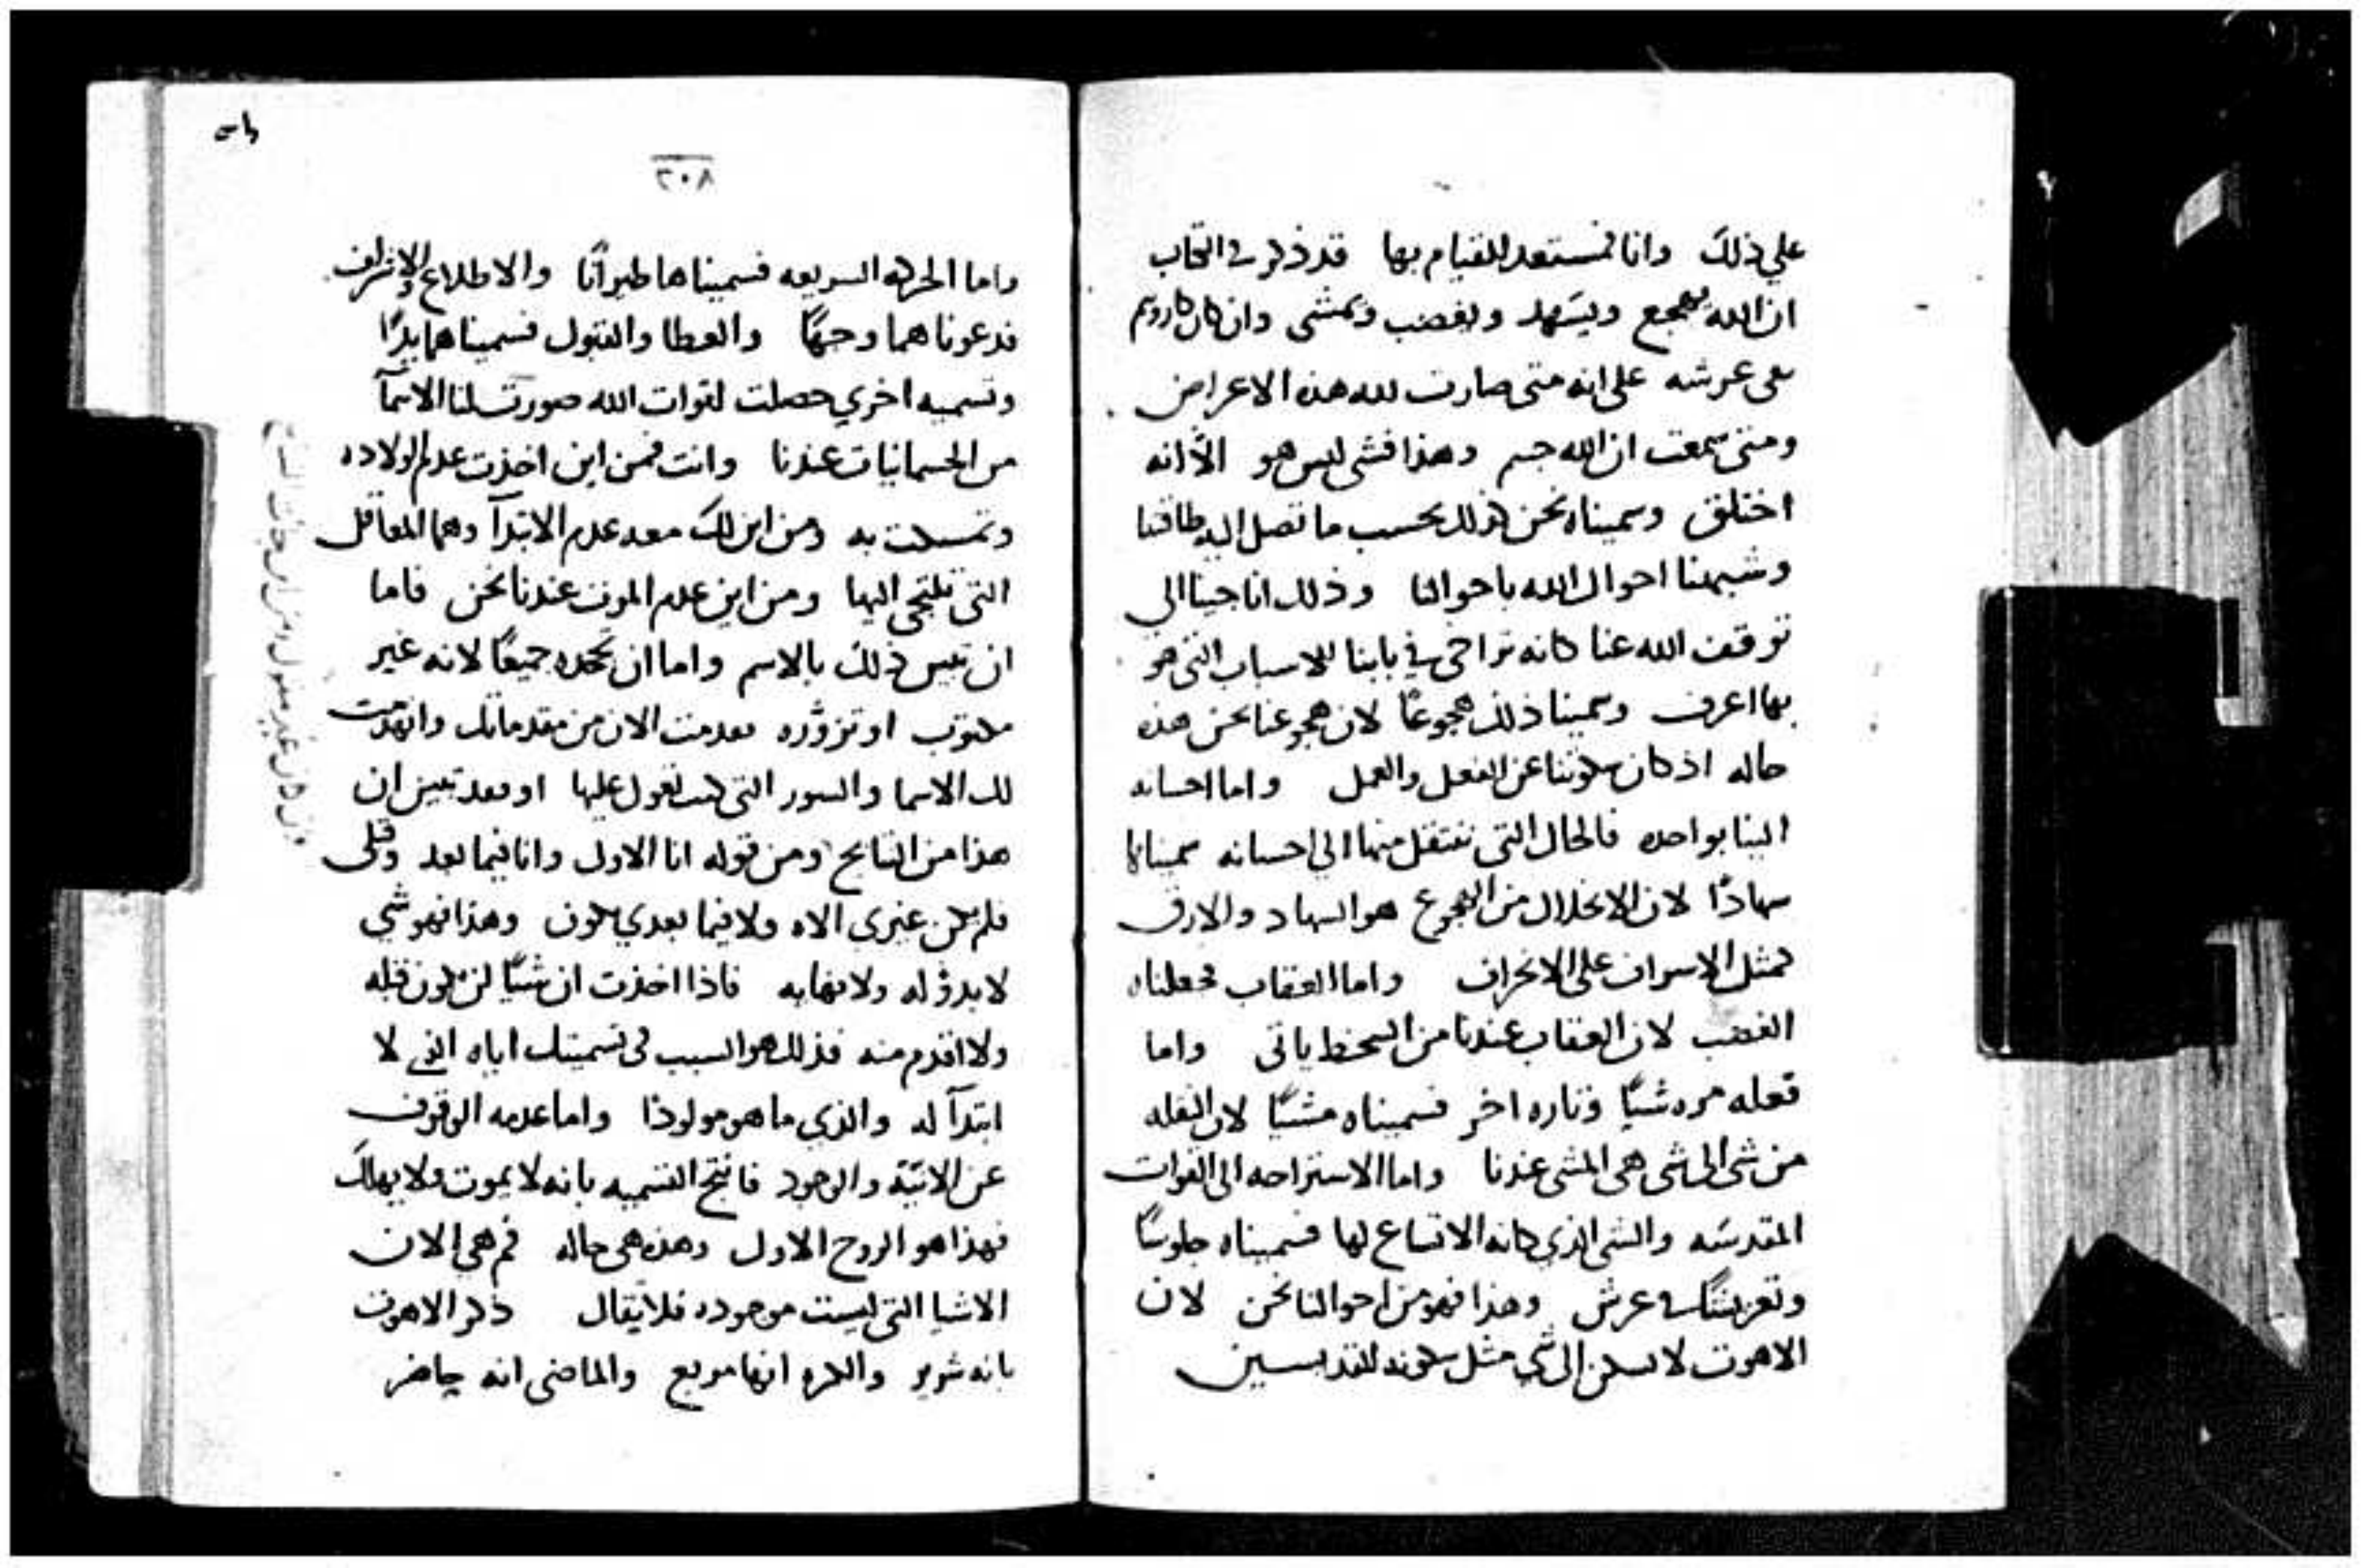 علي ذلك وانا فمستعد للقيام بها قد ذكر في الكتاب
ان الله يهجع ويسهد ويغضب ويمشى وان كاروبيم
هى عرشه على انه متى صارت لله هذه الاعراض
ومتى سمعت ان الله جسم وهذا فشى ليس هو الّا انه
اختلق وسميناه نحن كذلك بحسب ما تصل اليه طاقتنا
وشبهنا احوال الله باحوالنا وذلك انا جينا الى
توقف الله عنا كانه تراخى في بابنا للاسباب التى هو
بها اعرف وسمينا ذلك هجوعًا لان هجوعنا نحن هذه
حاله اذ كان سكوننا عن الفعل والعمل واما احسانه
الينا بواحده فالحال التى تنتقل منها الي احسانه سميناها
سهادًا لان الانحلال من الهجوع هو السهاد والارق
كمثل الاسراف على الانحراف واما العقاب فجعلناه
الغضب لان العقاب عندنا من السخط ياتى واما
فعله مره شيًا وتاره اخر فسميناه مشيًا لان النقله
من شى الى شى هى المشى عندنا واما الاستراحه الى القوات
المقدسه والشى الذي كانه الاتساع لها فسميناه جلوسًا
وتعرشًا في عرش وهذا فهو من احوالنا نحن لان
الاهوت لا يسكن الى شي مثل سكونه للقديسين
٢٠٨
واما الحركه السريعه فسميناها طيرانًا والاطلاع والاشراف
فدعوناهما وجهًا والعطا والقبول فسميناهما يدًا
وتسميه اخري حصلت لقوات الله صورت لنا الاسمآ
من الجسمانيات عندنا وانت فمن اين اخذت عدم الولاده
وتمسكت به ومن اين لك معه عدم الابتدآ وهما المعاقل
التى تلتجى اليها ومن اين عدم الموت عندنا نحن فاما
ان تبين ذلك بالاسم واما ان نجحده جميعًا لانه غير
مكتوب او تزوّره فعدمت الان من مقدماتك وانهدمت
لك الاسما والسور التى كنت تعول عليها او فقد تبين ان
هذا من النتايج ومن قوله انا الاول وانا فيما بعد وقبلى
فلم يكن غيرى الاه ولا فيما بعدي يكون وهذا فهو شي
لا بدؤ له ولا نهايه فاذا اخذت ان شيًا لن يكون قبله
ولا اقدم منه فذلك هو السبب فى تسميتك اياه الذي لا
ابتدآ له والذي ما هو مولودًا واما عدمه الوقوف
عن الانيّه والوجود فانتج التسميه بانه لا يموت ولا يهلك
فهذا هو الزوج الاول وهذه هى حاله فم هى الان
الاشيا التى ليست موجوده فلا يقال ذكر الاهوت
بانه شرير والكره انها مربع والماضى انه حاضر